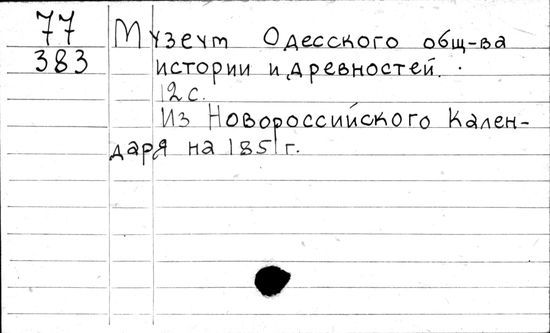 77
383
Музеум Одесского общ-ва
истории и древностей.
12 с.
Из Новороссийского Кален-
даря на 1851 г.